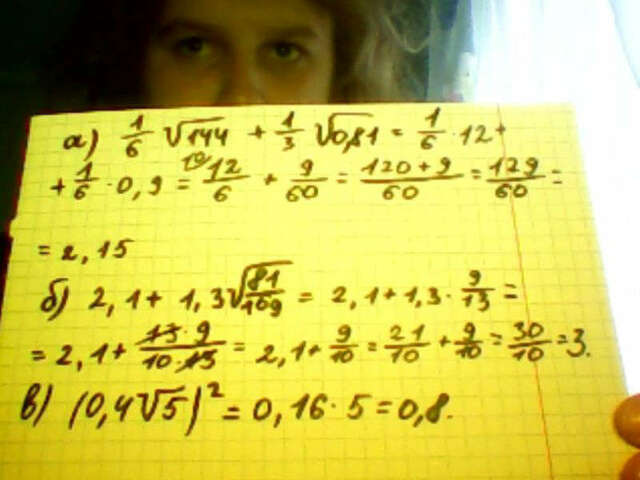 а) 1/6 √144 + 1/3 √0,81 = 1/6 · 12 +
+ 1/6 · 0,9 = 10) 12/6 + 9/60 = 120 + 9/60 = 129/60 =
= 2,15
б) 2,1 + 1,3 √81/169 = 2,1 + 1,3 · 9/13 =
= 2,1 + 13 · 9/10 · 13 = 2,1 + 9/10 = 21/10 + 9/10 = 30/10 = 3.
в) (0,4√5)² = 0,16 · 5 = 0,8.